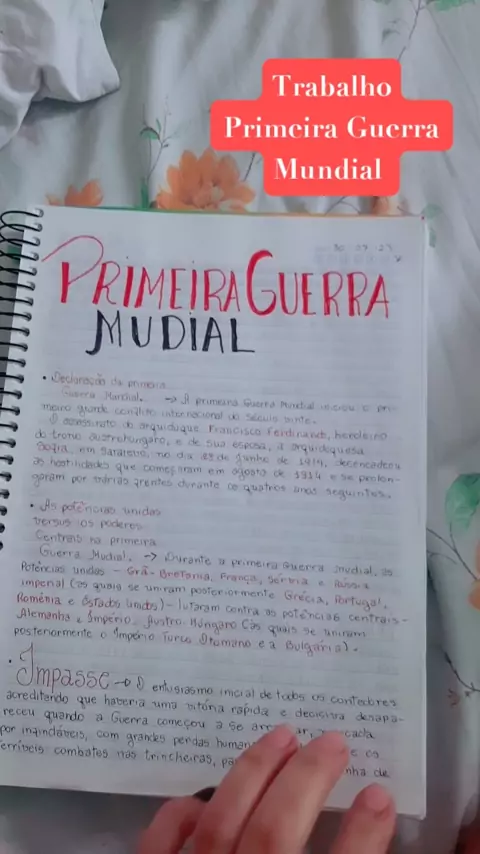 Trabalho
Primeira Guerra
Mundial
30 07 23
PRIMEIRA GUERRA
MUDIAL
• Declaração da primeira
Guerra Mundial. → A primeira Guerra Mundial iniciou o pri-
meiro grande conflito internacional do século vinte.
O assassinato do arquiduque Francisco Ferdinando, herdeiro
do trono austro-húngaro, e de sua esposa, a arquiduquesa
Sofia, em Saraievo, no dia 28 de junho de 1914, desencadeou
as hostilidades que começaram em agosto de 1914 e se prolon-
garam por várias frentes durante os quatros anos seguintes.
• As potências unidas
versus os poderes
Centrais na primeira
Guerra Mudial. → Durante a primeira guerra mudial, as
Potências unidas - Grã-Bretanha, França, Sérvia e Rússia
imperial (as quais se uniram posteriormente Grécia, Portugal,
Romênia e Estados Unidos) - lutaram contra as potências centrais-
Alemanha e Império Austro-Húngaro (as quais se uniram
posteriormente o Império Turco Otomano e a Bulgária).
• Impasse → O entusiasmo inicial de todos os
acreditando que haveria uma vitória rápida e decisiva desapa-
receu quando a Guerra começou a se
por infindáveis, com grandes perdas e os
terríveis combates nas trincheiras, de